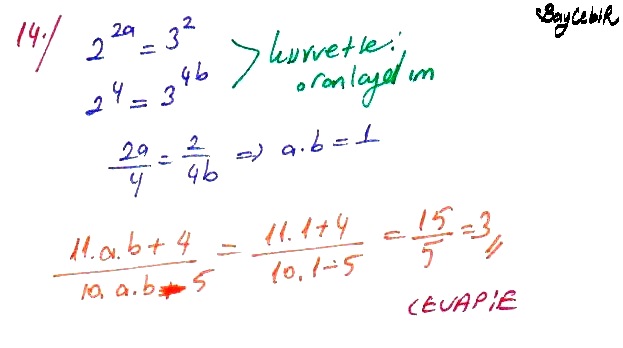 BayCebiR
14./ 2^{2a} = 3^2
2^4 = 3^{4b}
> kuvvetleri oranlayalım
2a/4 = 2/4b ⇒ a.b = 1
(11.a.b + 4)/(10.a.b - 5) = (11.1+4)/(10.1-5) = 15/5 = 3//
CEVAP:E